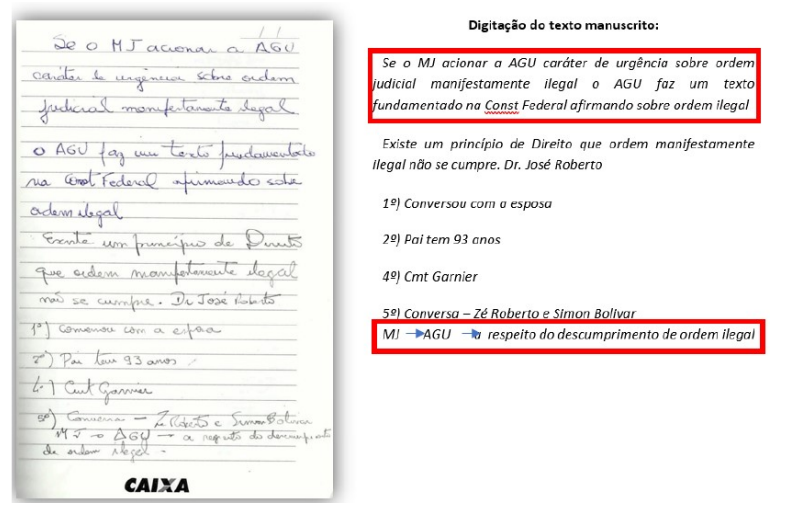 / /
Se o MJ acionar a AGU
caráter de urgência sobre ordem
judicial manifestamente ilegal
o AGU faz um texto fundamentado
na Const Federal afirmando sobre
ordem ilegal
Existe um princípio de Direito
que ordem manifestamente ilegal
não se cumpre. Dr José Roberto
1º) Conversou com a esposa
2º) Pai tem 93 anos
4º) Cmt Garnier
5º) Conversa – Zé Roberto e Simon Bolivar
MJ → AGU → a respeito do descumprimento
de ordem ilegal -
CAIXA
Digitação do texto manuscrito:
Se o MJ acionar a AGU caráter de urgência sobre ordem
judicial manifestamente ilegal o AGU faz um texto
fundamentado na Const Federal afirmando sobre ordem ilegal
Existe um princípio de Direito que ordem manifestamente
ilegal não se cumpre. Dr. José Roberto
1º) Conversou com a esposa
2º) Pai tem 93 anos
4º) Cmt Garnier
5º) Conversa – Zé Roberto e Simon Bolivar
MJ → AGU → a respeito do descumprimento de ordem ilegal